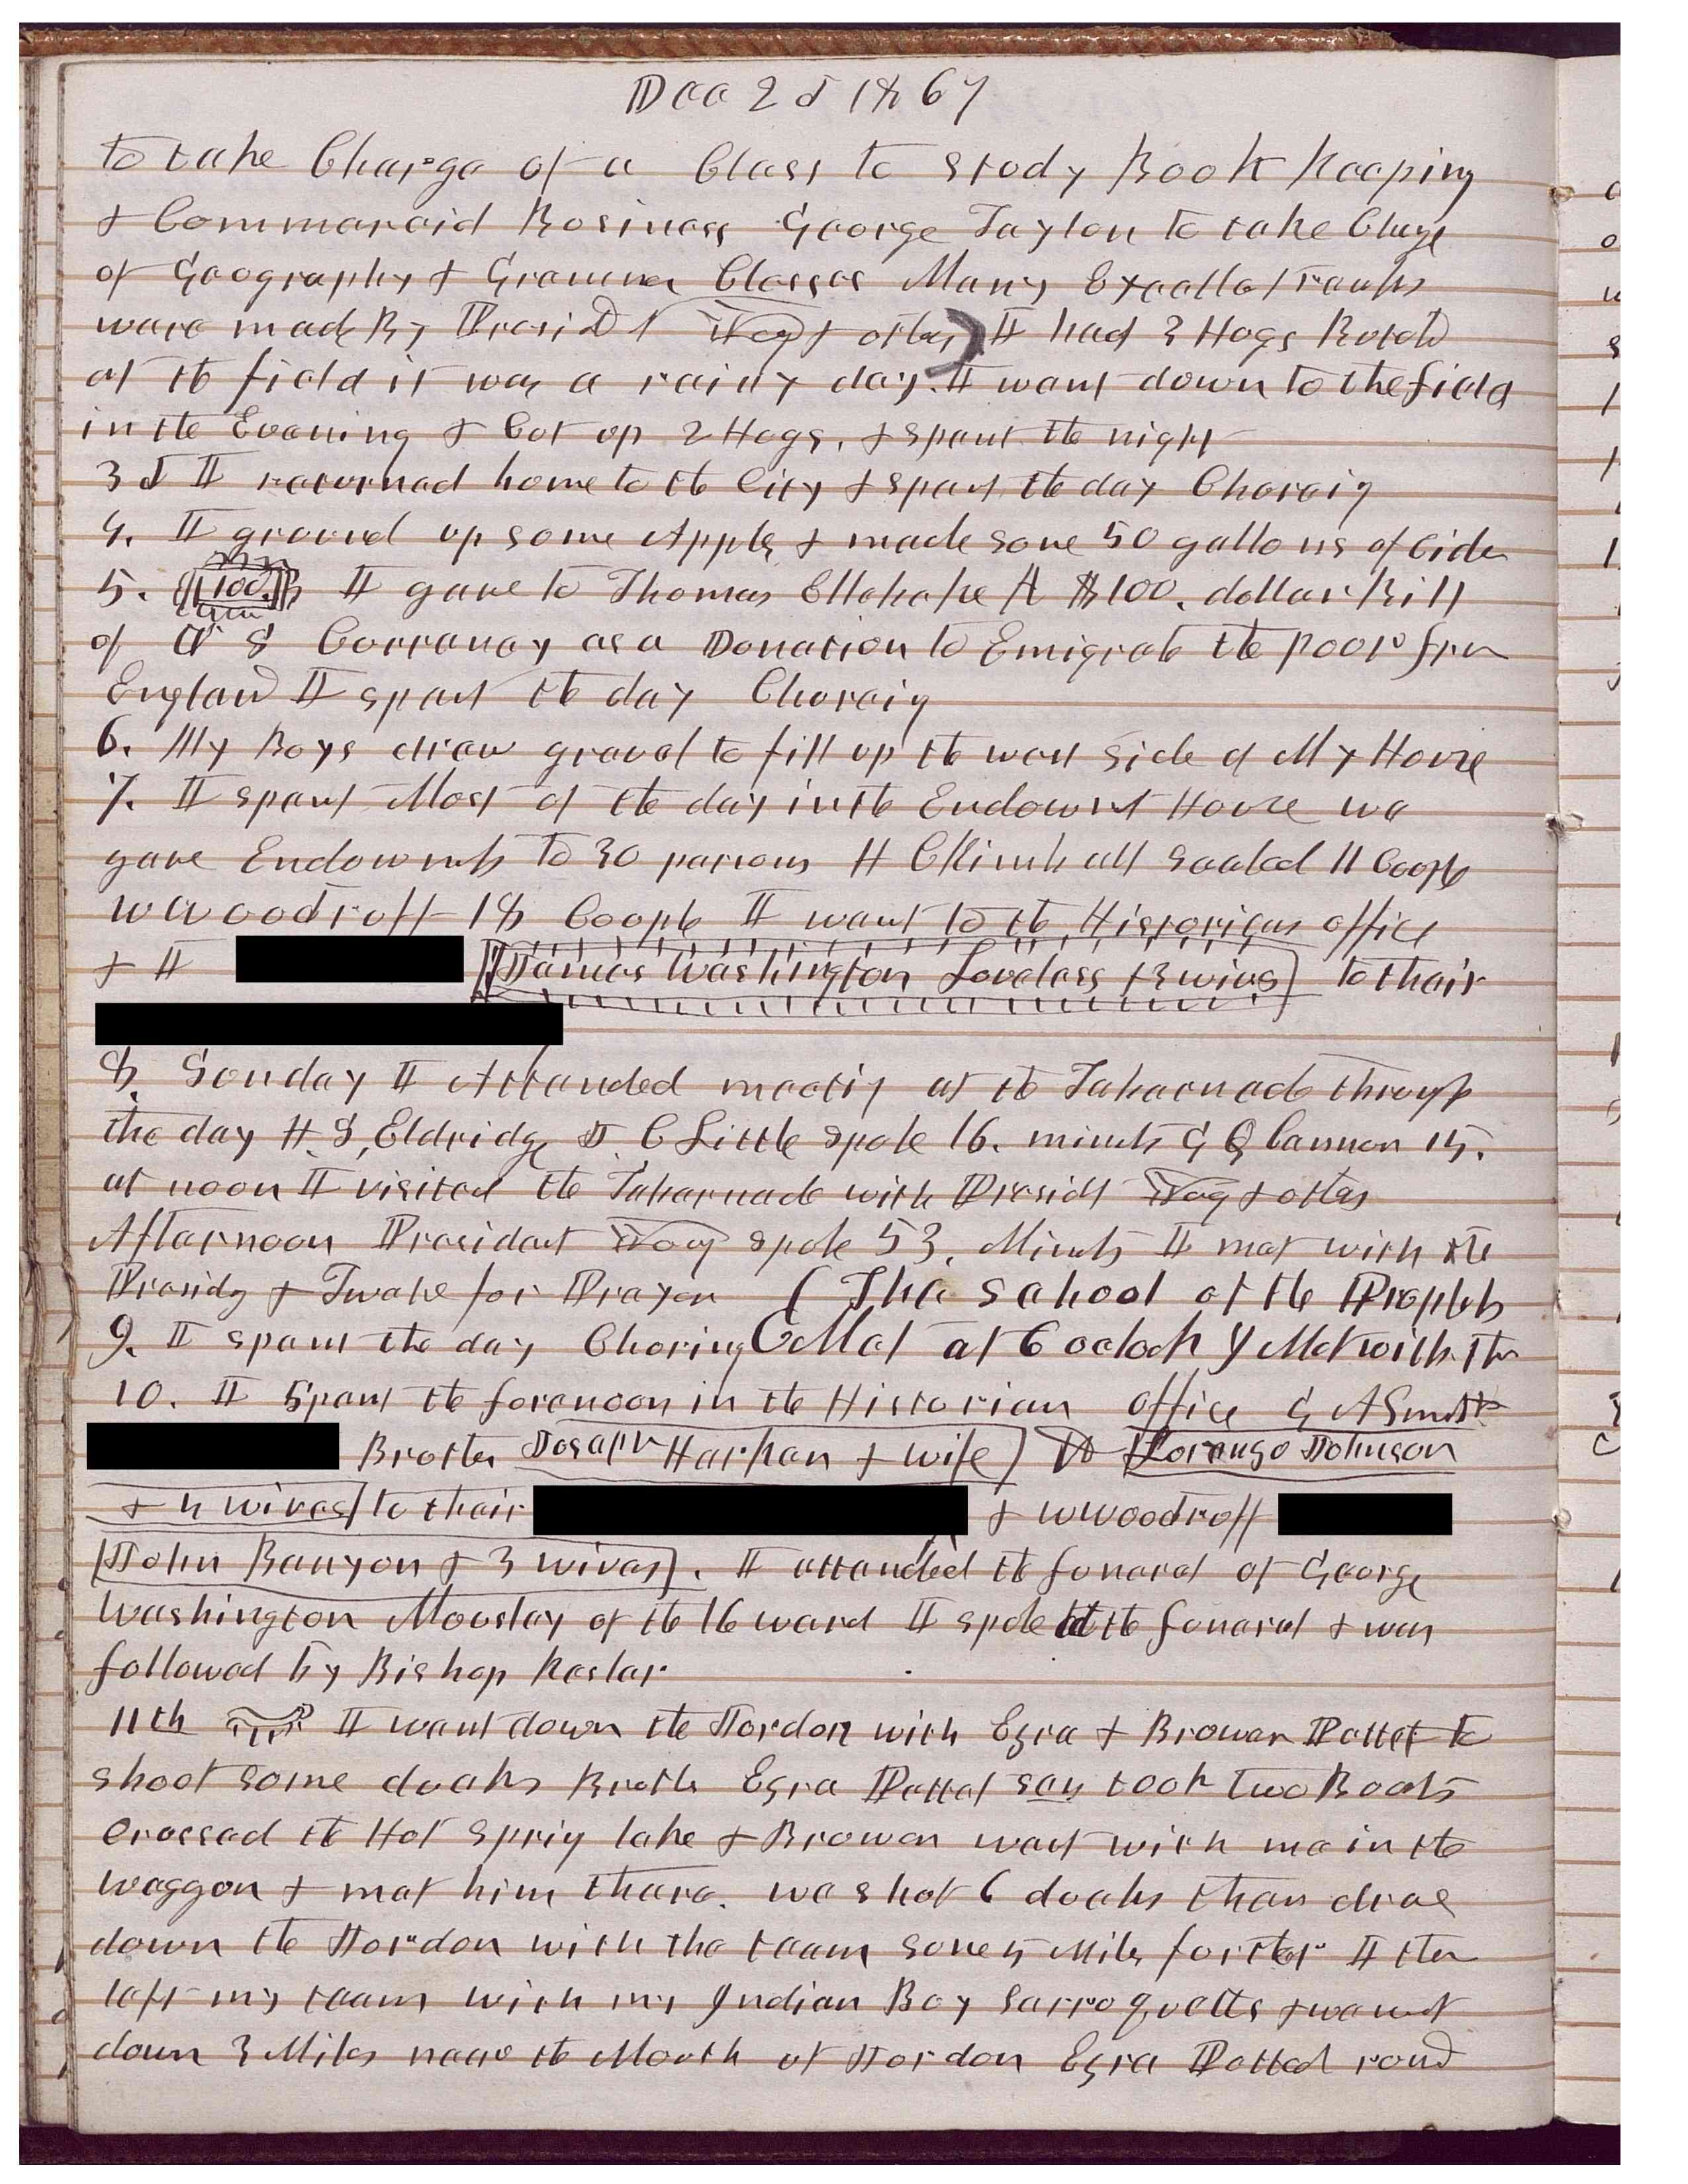 Dec 2d 1867
to take Charge of a Class to study Book Keeping
& Commercid Business George Taylor to take Charge
of Geography & Grammer Classes Many Excelle[t] remarks
were made By Presidt Young & others I had 3 Hogs Butchd
at the field it was a rainy day. I went down to the field
in the Evening & Cut up 2 Hogs, & spent the night
3d I returned home to the City & spent the day Choreig
4. I ground up some Apples & made some 50 gallons of Cider
5. 100. I gave to Thomas Ellekake A $100. dollar Bill
of U S Currancy as a Donation to Emigrate the poor from
England I spent the day Choreig
6. My Boys drew gravel to fill up the west side of My House
7. I spent Most of the day in the Endowmt House we
gave Endowmts to 30 persons H C Kimball sealed 11 Couple
W Woodruff 18 Couple I went to the Historians office
& H James Washington Loveless & 3 wives to their
8. Sunday I Attended meetig at the Tabernacle through
the day H. S, Eldridge J. C Little spoke 16. minuts G Q Cannon 15.
at noon I visited the Tabernacle with Presidt Young & others
Afternoon President Young spoke 53. Minuts I met with the
Presidy & Twelve for Prayer ( The School of the Prophets
9. I spent the day Choring Met at 6 oclock I Met with them
10. I spent the forenoon in the Historian office G A Smith
Brother Joseph Harker & wife Lorenzo Johnson
& 4 wives to their & W Woodruff
John Banyon & 3 wives. I attended the funeral of George
Washington Mousley of the 16 ward I spoke at the funeral & was
followed by Bishop Kesler.
11th I went down the Jordon with Ezra & Brower Pettet to
shoot some ducks Brother Ezra Pettet sen took two Boats
Crossed the Hot Sprig lake & Brower went with me in the
waggon & met him there. we shot 6 ducks then drove
down the Jordon with the team some 5 Miles further I then
left my team with my Indian Boy Sarroquetts & went
down 3 Miles near the Mouth of Jordon Ezra Petted rowd